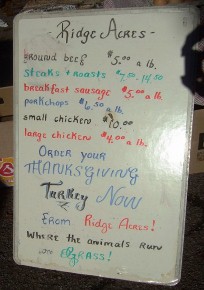 - Ridge Acres -
ground beef $5.00 a lb.
steaks + roasts $7.50-14.50
breakfast sausage $5.00 a lb.
porkchops $6.50 a lb.
small chickens $10.00
large chickens $4.00 a lb.
Order your
THANKSGIVING
Turkey Now
From Ridge Acres!
Where the animals Run
on GRASS!